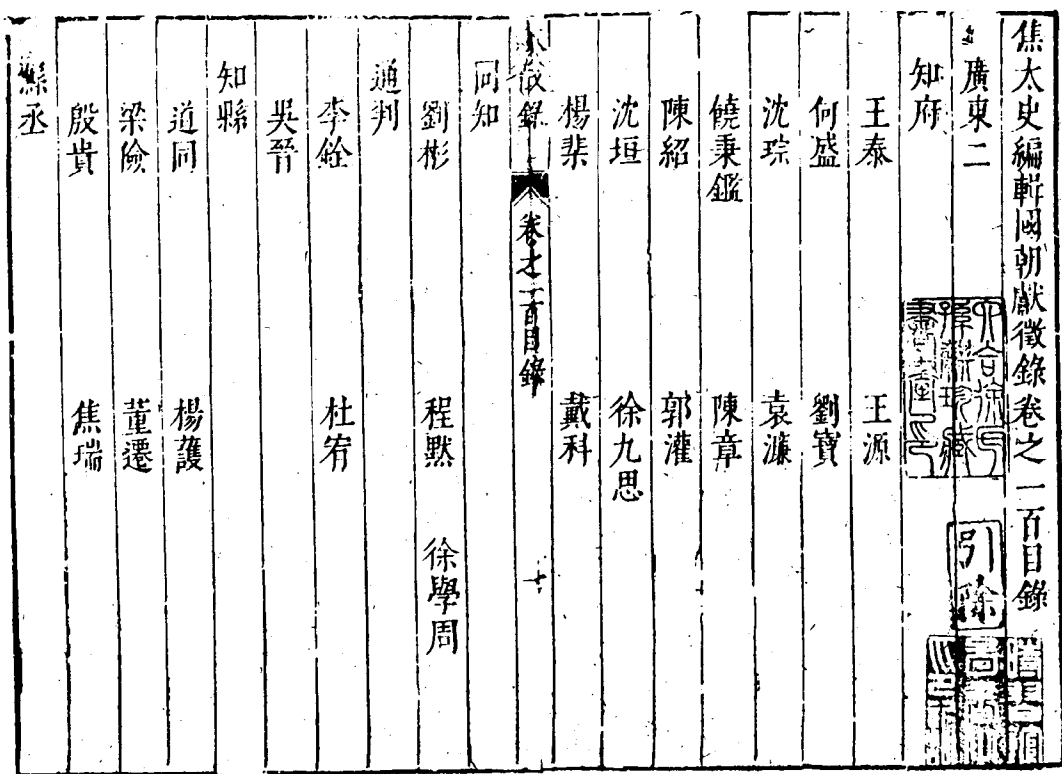 焦太史編輯國朝獻徵錄卷之一百目錄
廣東二
知府
王泰 王源
何盛 劉寶
沈琮 袁濂
饒秉鑑 陳章
陳紹 郭灌
沈垣 徐九思
楊棐 戴科
徵錄 卷之一百目錄 十
同知
劉彬 程默 徐學周
通判
李銓 杜宥
吳晉
知縣
道同 楊護
梁儉 董遷
殷貴 焦瑞
縣丞